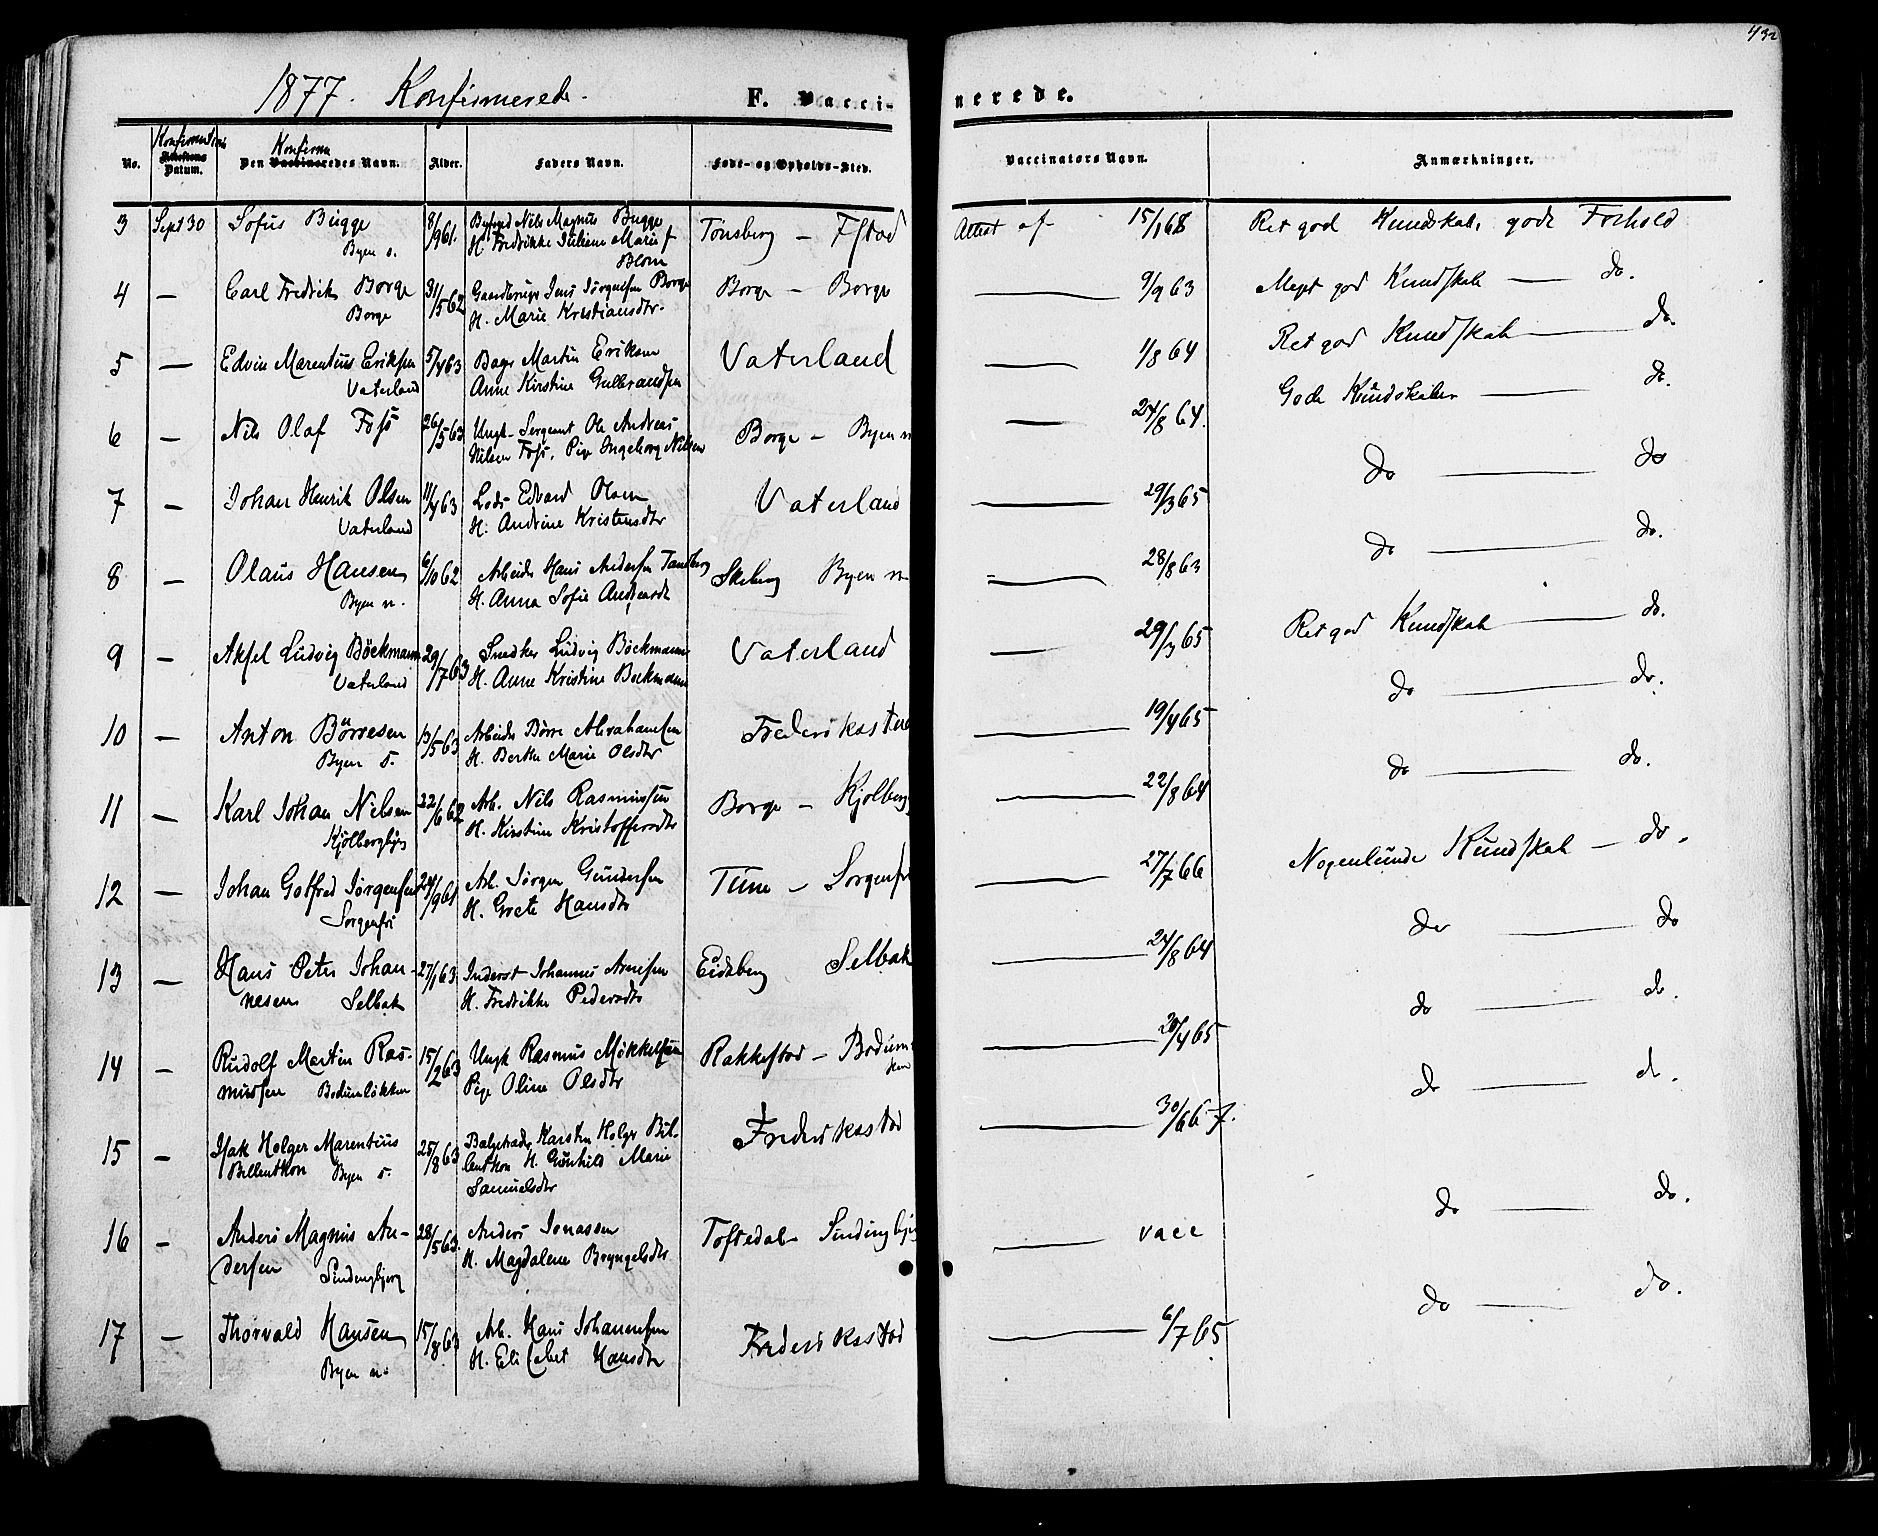 432
1877. Konfirmerede.
F. Vacci-
nerede.
No. Konfirmations Attestens Datum. Den Konfirme Vaccineredes Navn. Alder. Faders Navn. Føde- og Opholds-Sted. Vaccinators Navn. Anmærkninger.
3 Sept 30 Sofus Bugge 8/9 61. Nils Magnus Bugge Tønsberg – Fstad Attest af 15/1 68 Ret god Kundskab, gode Forhold
Byen s. H. Fredrikke Juliane Marie f
Blom
4 — Carl Fredrik Borge 31/5 62 Gaardbruger Jens Jørgensen Borge Borge – Borge — 9/9 63 Meget god Kundskab — do.
Borge H. Marie Kristiansdtr.
5 — Edvin Marentius Eriksen 5/4 63 Bager Martin Eriksen Vaterland — 1/8 64 Ret god Kundskab — do.
Vaterland Anne Kirstine Gulbrandsen
6 — Nils Olaf Foss 26/5 63 Ungk. Sergeant Ole Andreas Borge – Byen n — 24/8 64. Gode Kundskaber — do.
Nilsen Foss, Pige Ingeborg Nilsen
7 — Johan Henrik Olsen 11/4 63 Lods Edvard Olsen Vaterland — 29/3 65 do — do
Vaterland H. Andrine Kristensdtr
8 — Olaus Hansen 6/10 62 Arbeider Hans Andersen Tandberg Skeberg Byen n — 28/8 63 do — do.
Byen n. H. Anna Sofie
9 — Aksel Ludvig Böckmann 29/7 63 Snedker Ludvig Böckmann Vaterland — 29/3 65 Ret god Kundskab — do.
Vaterland H. Anne Kristine Bockmann
10 — Anton Börresen 13/5 63 Arbeider Börre Abrahamsen Frederikstad — 19/4 65 do — do.
Byen s. H. Berthe Marie Olsdtr
11 — Karl Johan Nilsen 22/6 62 Arb. Nils Rasmussen Borge – Kjölberg — 22/8 64 do — do.
Kjölbergbjg H. Kirstine Kristoffersdtr
12 — Johan Gotfred Jørgensen 24/9 61 Arb. Jörgen Gundersen Tune – Sorgenfri — 27/7 66 Nogenlunde Kundskab — do.
Sorgenfri H. Grete Hansdtr
13 — Hans Peter Johan- 27/1 63 Inderst Johannes Arnesen Eidsberg Selbak — 24/8 64 do — do
nesen Selbak H. Fredrikke Pedersdtr
14 — Rudolf Martin Ras- 15/2 63 Ungk Rasmus Mökkelsen Rakkestad – Bodum- — 20/4 65 do — do.
mussen Bodumlökken Pige Oline Olsdtr
15 — Isak Holger Marentius 25/8 63 Karsten Holger Bil- Frederikstad — 30/6 67. do — do.
Billentkon Byen s. lentkon H. Gunhild Marie
Samuelsdtr
16 — Anders Magnus An- 28/5 63. Anders Jonassen Toftedal – Sindingbjg — vacc do — do.
dersen Sindingbjerg H. Magdalene Bryngelsdtr
17 — Thorvald Hansen 15/8 63 Arb. Hans Johannesen Frederikstad — 6/7 65 do — do.
Byen n. H. Elisabet Hansdtr